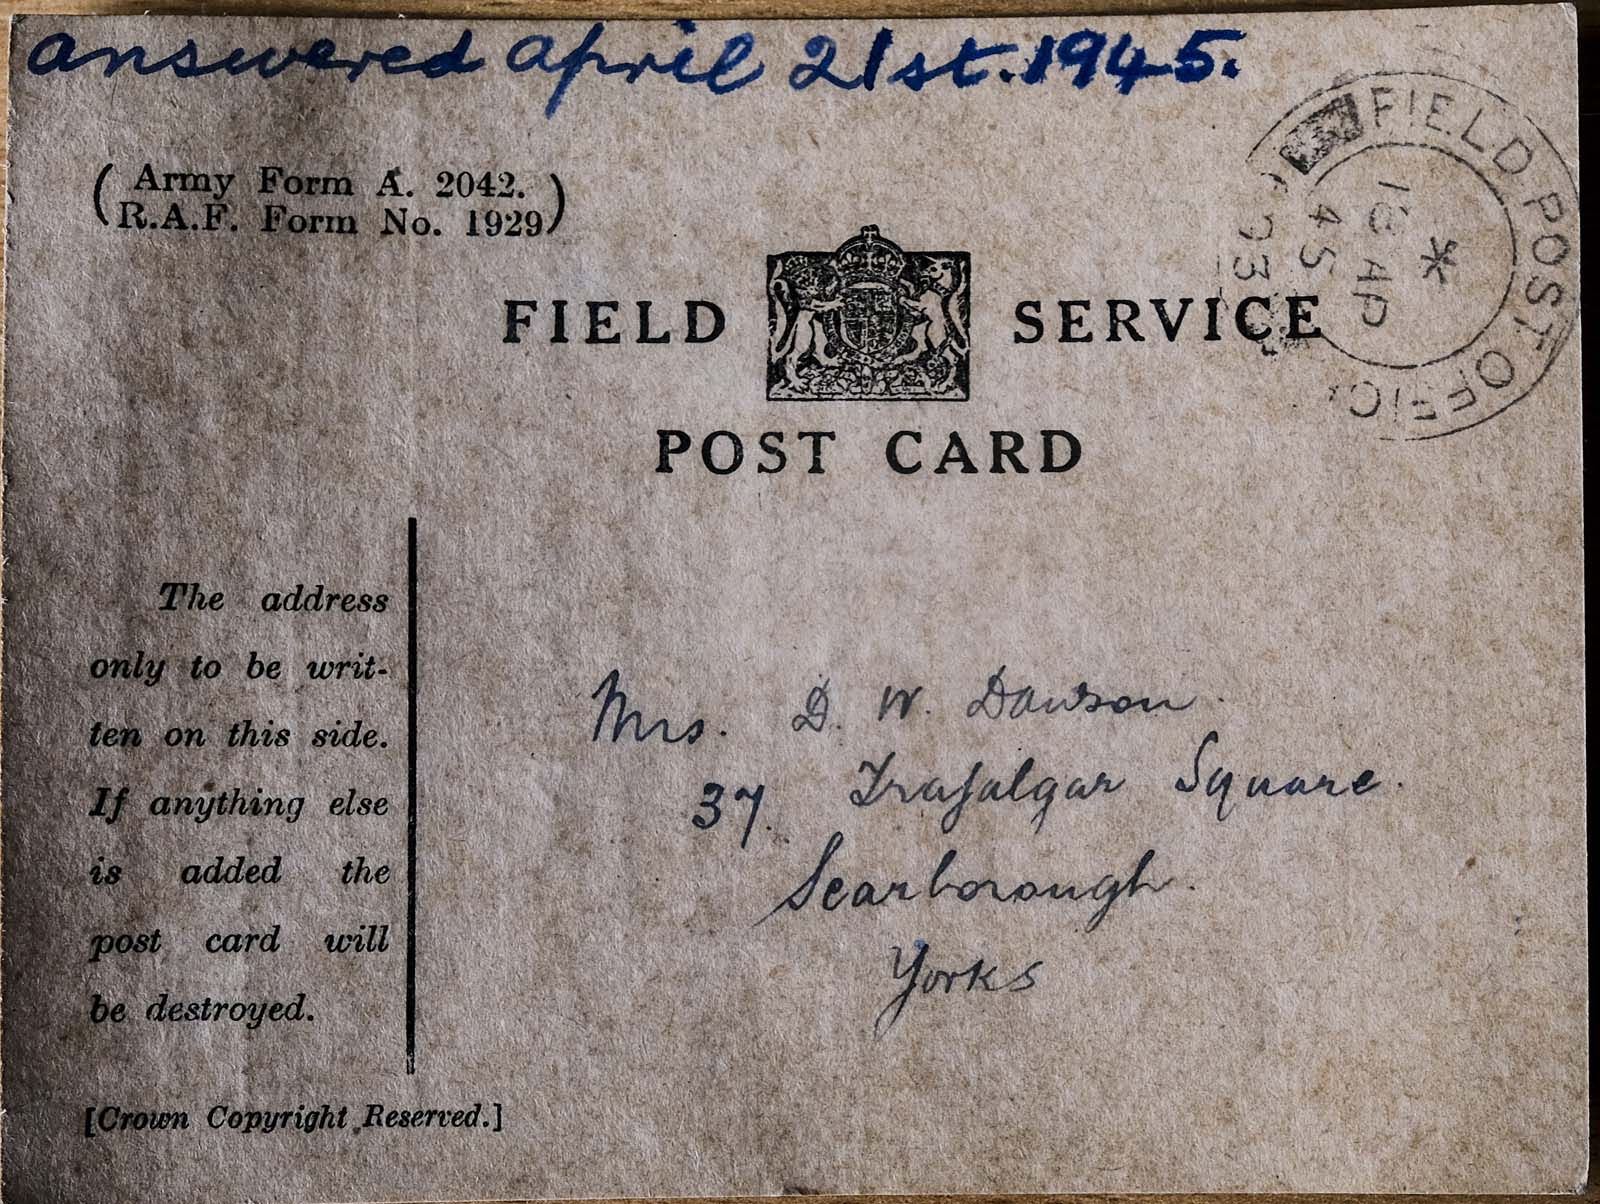 answered april 21st. 1945.
(Army Form A. 2042.
R.A.F. Form No. 1929)
FIELD POST OFFICE
*
AP
45
FIELD SERVICE
POST CARD
The address
only to be writ-
ten on this side.
If anything else
is added the
post card will
be destroyed.
[Crown Copyright Reserved.]
Mrs. D. W. Dawson.
37. Trafalgar Square.
Scarborough.
Yorks